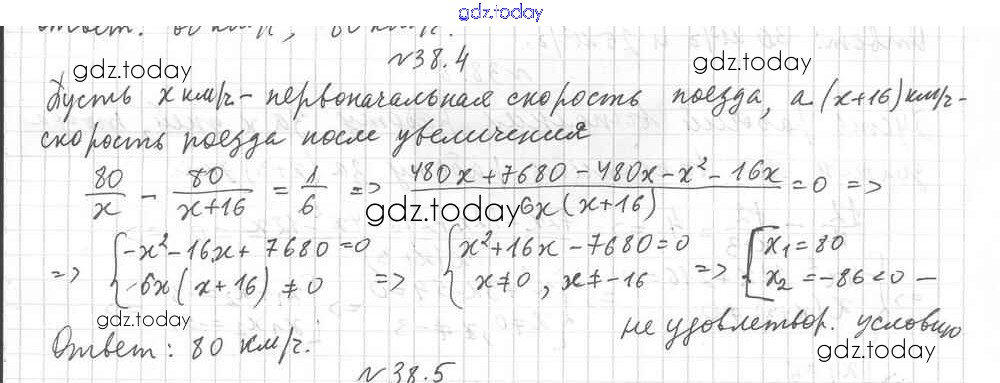 gdz.today
№38.4
gdz.today gdz.today
Пусть x км/ч - первоначальная скорость поезда, а (x+16) км/ч -
скорость поезда после увеличения
80/x - 80/(x+16) = 1/6 => (480x+7680-480x-x²-16x)/(6x(x+16)) = 0 =>
gdz.today
=> { -x²-16x+7680=0 ; 6x(x+16) ≠ 0 => { x²+16x-7680=0 ; x≠0, x≠-16 => [ x₁=80 ; x₂=-86<0 -
gdz.today gdz.today
не удовлетвор. условию
Ответ: 80 км/ч.
gdz.today
№38.5